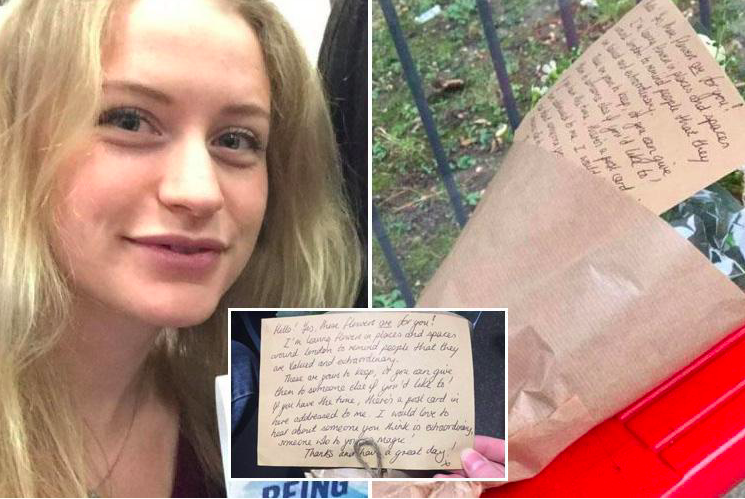 Hello! Yes, these flowers are for you!
I'm leaving flowers in places and spaces
around London to remind people that they
are valued and extraordinary.
These are yours to keep, or you can give
them to someone else if you'd like to!
If you have the time, there's a post card in
here addressed to me. I would love to
hear about someone you think is extraordinary,
someone who to you is 'magic'
Thanks and have a great day!
BEING
these flowers are for you!
flowers in places and spaces
to remind people that they
valued and extraordinary.
to keep, or you can give
someone else if you'd like to!
the time, there's a post card
addressed to me. I would